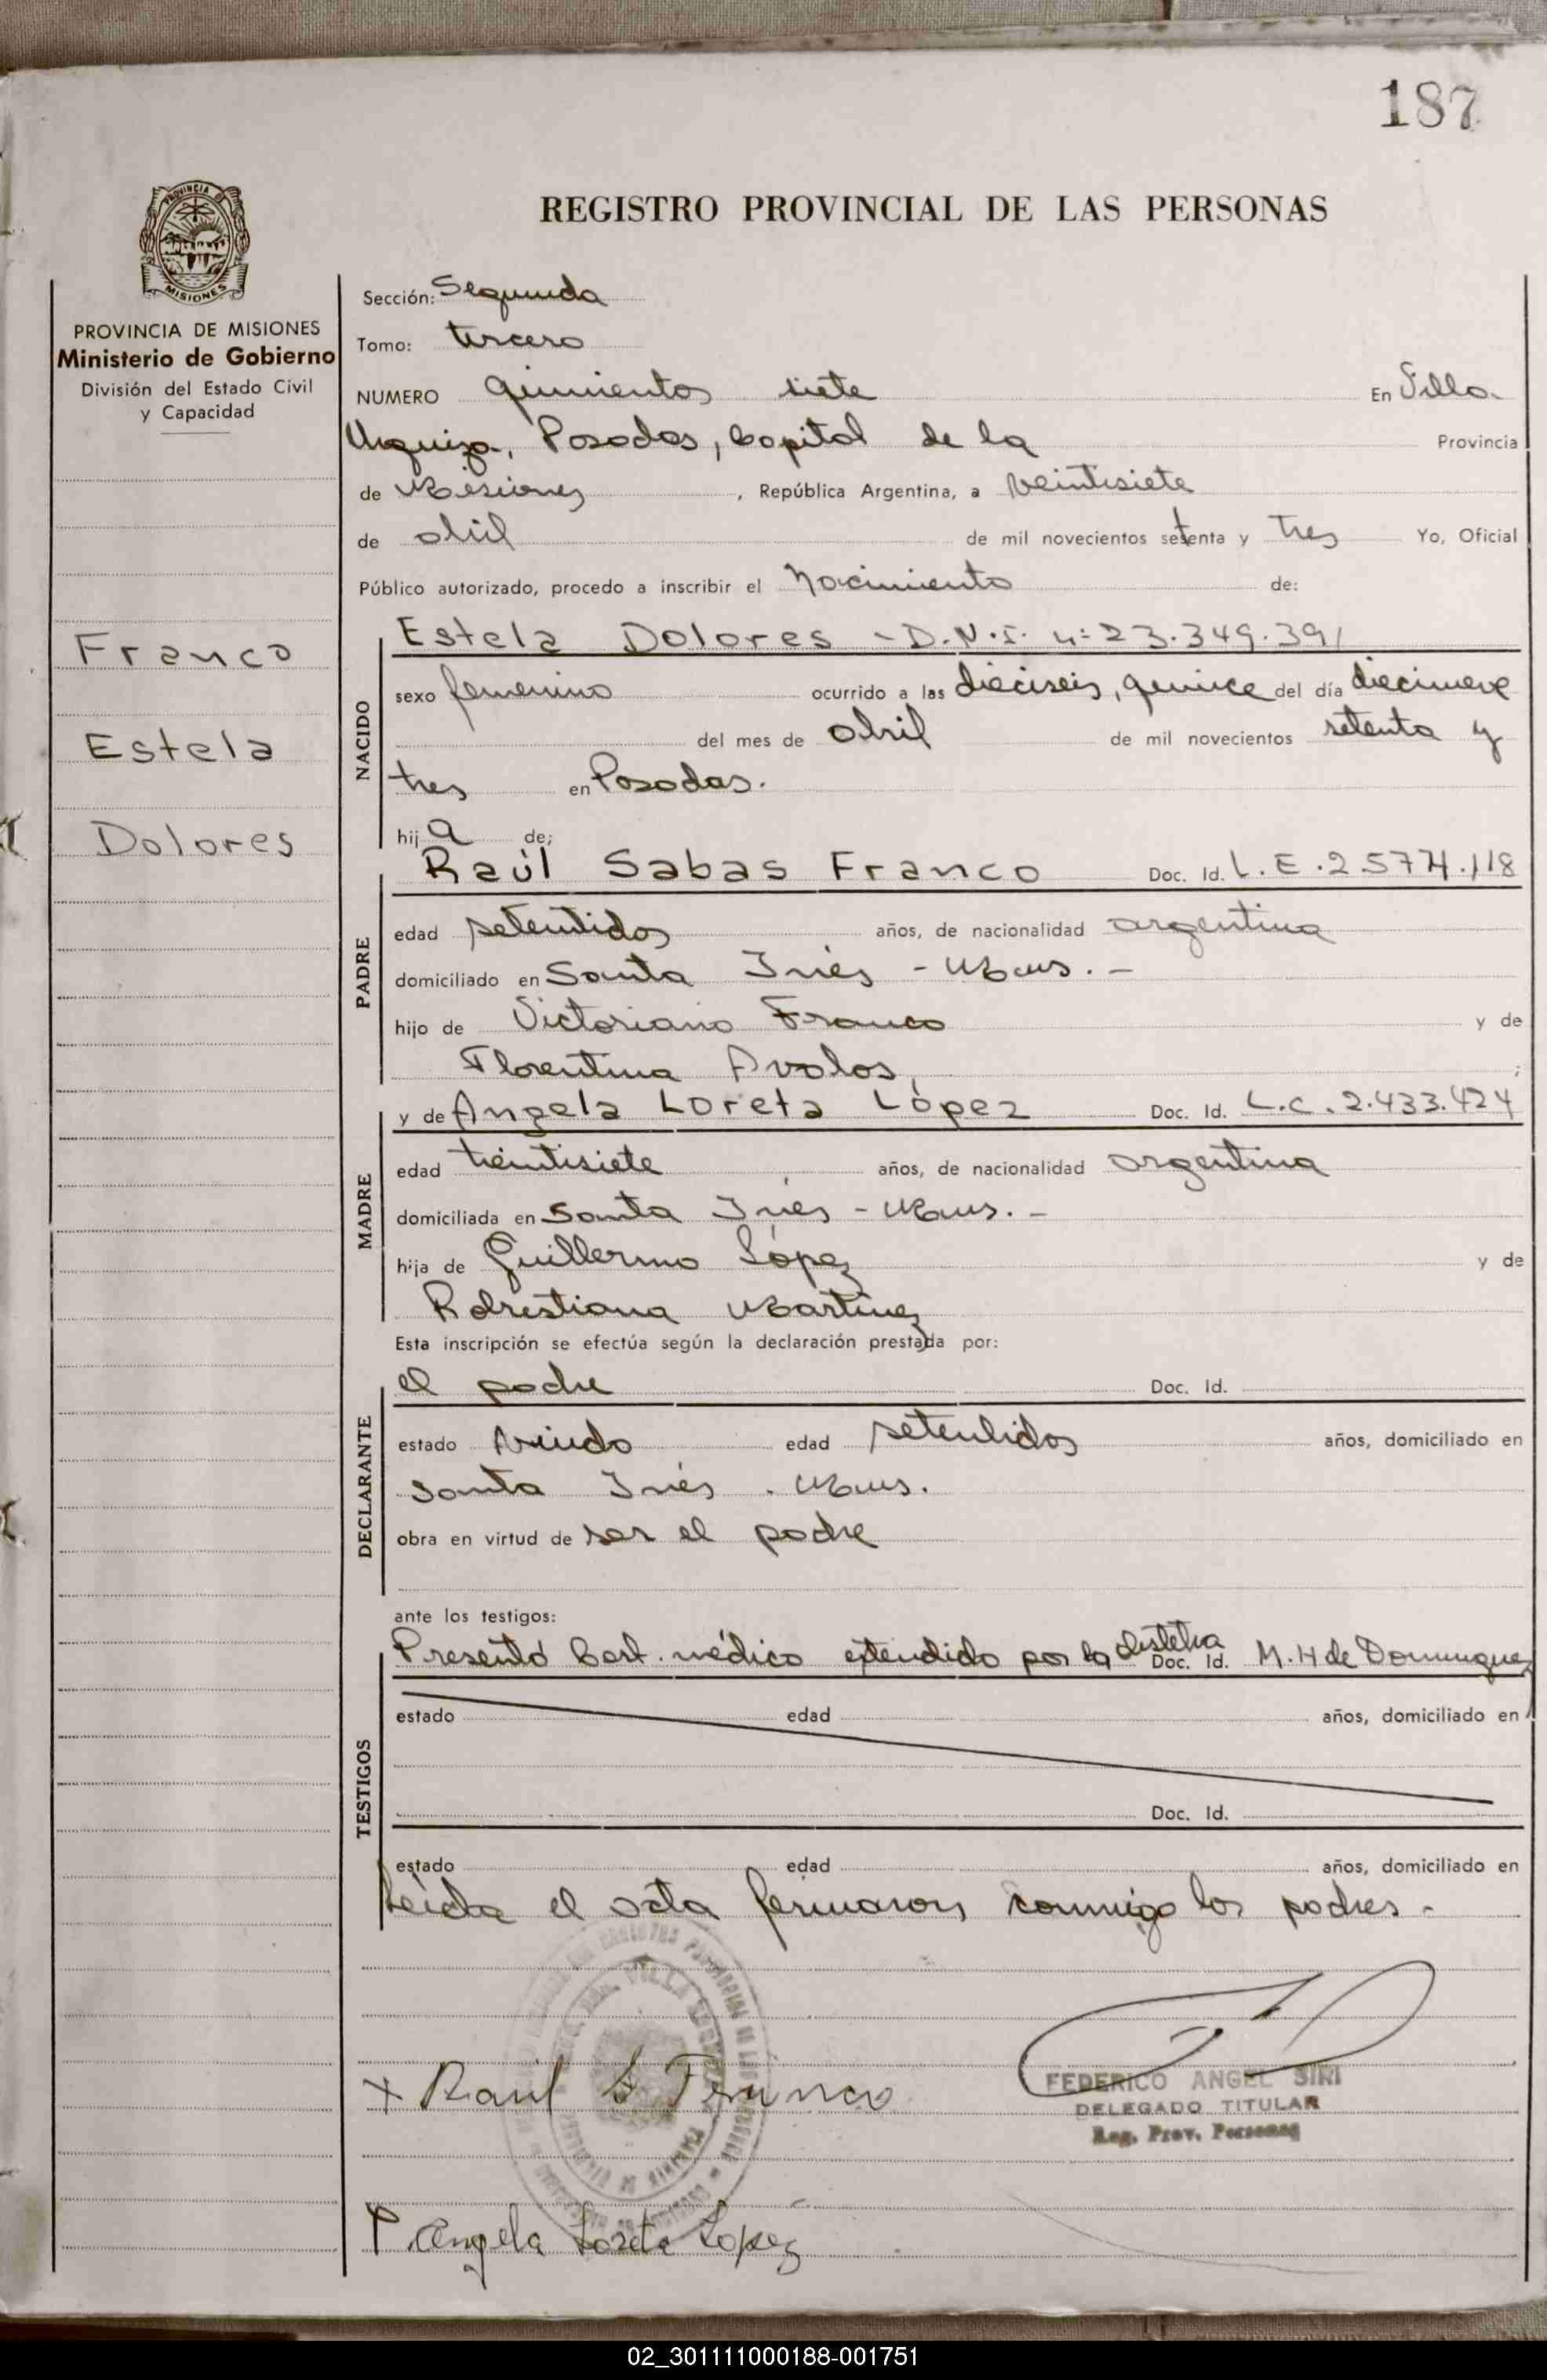 187
PROVINCIA DE MISIONES
Ministerio de Gobierno
División del Estado Civil
y Capacidad
Franco
Estela
Dolores
REGISTRO PROVINCIAL DE LAS PERSONAS
Sección: Segunda
Tomo: tercero
NUMERO quinientos siete En Villa
Urquiza, Posadas, Capital de la Provincia
de Misiones, República Argentina, a veintisiete
de abril de mil novecientos setenta y tres Yo, Oficial
Público autorizado, procedo a inscribir el Nacimiento de:
NACIDO
Estela Dolores - D.N.I. n: 23.349.391
sexo femenino ocurrido a las dieciseis, quince del día diecinueve
del mes de abril de mil novecientos setenta y
tres en Posadas.
hij a de;
PADRE
Raúl Sabas Franco Doc. Id. L.E. 2574.118
edad setentidos años, de nacionalidad argentina
domiciliado en Santa Inés - Mnes. -
hijo de Victoriano Franco y de
Florentina Avalos, ;
MADRE
y de Angela Loreta López Doc. Id. L.C. 2.433.424
edad treintisiete años, de nacionalidad argentina
domiciliada en Santa Inés - Mnes. -
hija de Guillermo López y de
Martinez
Esta inscripción se efectúa según la declaración prestada por:
DECLARANTE
el padre Doc. Id.
estado viudo edad setentidos años, domiciliado en
Santa Inés . Mnes.
obra en virtud de ser el padre
ante los testigos:
TESTIGOS
Presentó Cert. médico extendido por la obstetra Doc. Id. M. H de Dominguez
estado edad años, domiciliado en
Doc. Id.
estado edad años, domiciliado en
Leída el acta firmaron conmigo los padres -
Raul S Franco
FEDERICO ANGEL SIRI
DELEGADO TITULAR
Reg. Prov. Personas
Angela Loreta Lopez
02_301111000188-001751